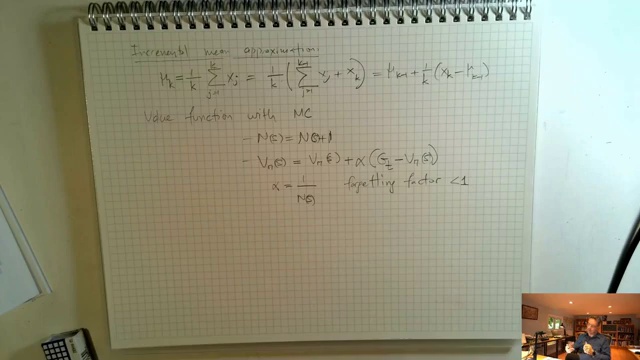 Incremental mean approximation:
μ_k = 1/k ∑_{j=1}^{k} x_j = 1/k ( ∑_{j=1}^{k-1} x_j + x_k ) = μ_{k-1} + 1/k ( x_k − μ_{k-1} )
Value function with MC
– N(s) = N(s)+1
– V_π(s) = V_π(s) + α ( G_t − V_π(s) )
α = 1/N(s) forgetting factor < 1